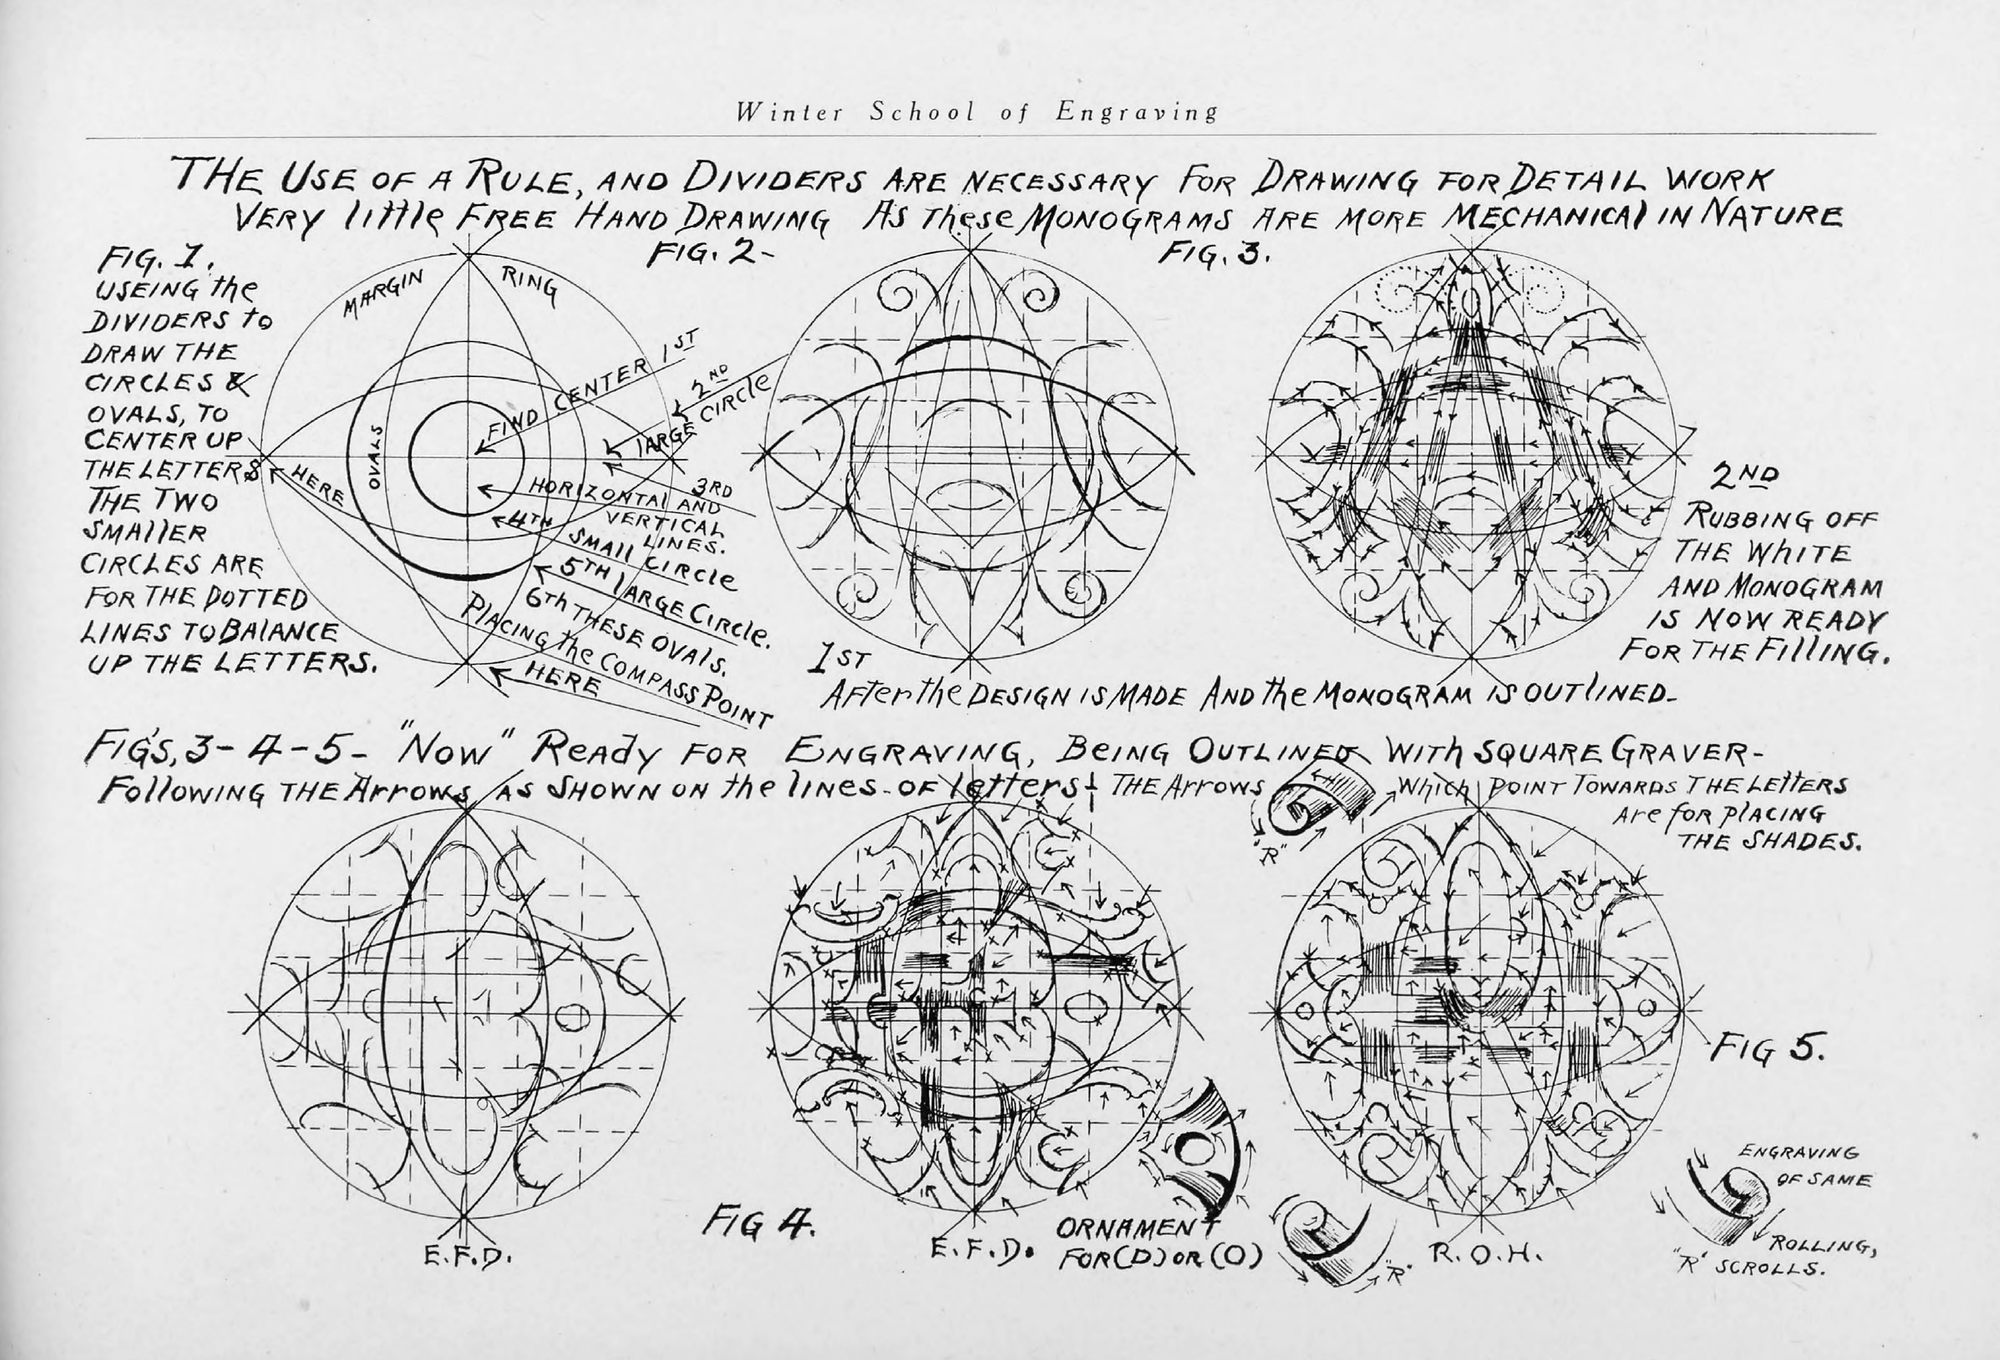 Winter School of Engraving
THE USE OF A RULE, AND DIVIDERS ARE NECESSARY FOR DRAWING FOR DETAIL WORK
VERY little FREE HAND DRAWING AS These MONOGRAMS ARE MORE MECHANICAl IN NATURE
FIG. 1.
USEING the
DIVIDERS to
DRAW THE
CIRCLES &
OVALS, TO
CENTER UP
THE LETTERS
THE TWO
SMAllER
CIRCLES ARE
FOR THE DOTTED
LINES TO BALANCE
UP THE LETTERS.
MARGIN RING
OVALS
HERE
FIND CENTER 1ST
2ND
lARGE CIRCle
3RD
HORIZONTAl AND
VERTICAL
LINES.
4TH SMAll CIRCle
5TH lARGE CIRCle.
6Th THESE OVAlS.
PlACING the COMPASS POINT
HERE
FIG. 2-
1ST
AFTer the DESIGN IS MADE AND the MONOGRAM IS OUTlINED-
FIG. 3.
2ND
RUBBING OFF
THE WHITE
AND MONOGRAM
IS NOW READY
FOR THE FIllING.
FIG'S, 3-4-5- "NOW" READY FOR ENGRAVING, BEING OUTLINED WITh SQUARE GRAVER-
FOllOWING THE ArrOWS AS SHOWN ON the lINES-OF letters- THE ArrOWS Which POINT TOWARDS THE LEtterS
Are for PlACING
THE SHADES.
"R"
E.F.D.
FIG 4.
E.F.D.
ORNAMENT
FOR (D) OR (O)
"R"
R.O.H.
FIG 5.
ENGRAVING
OF SAME
ROLLING,
"R" SCROLLS.